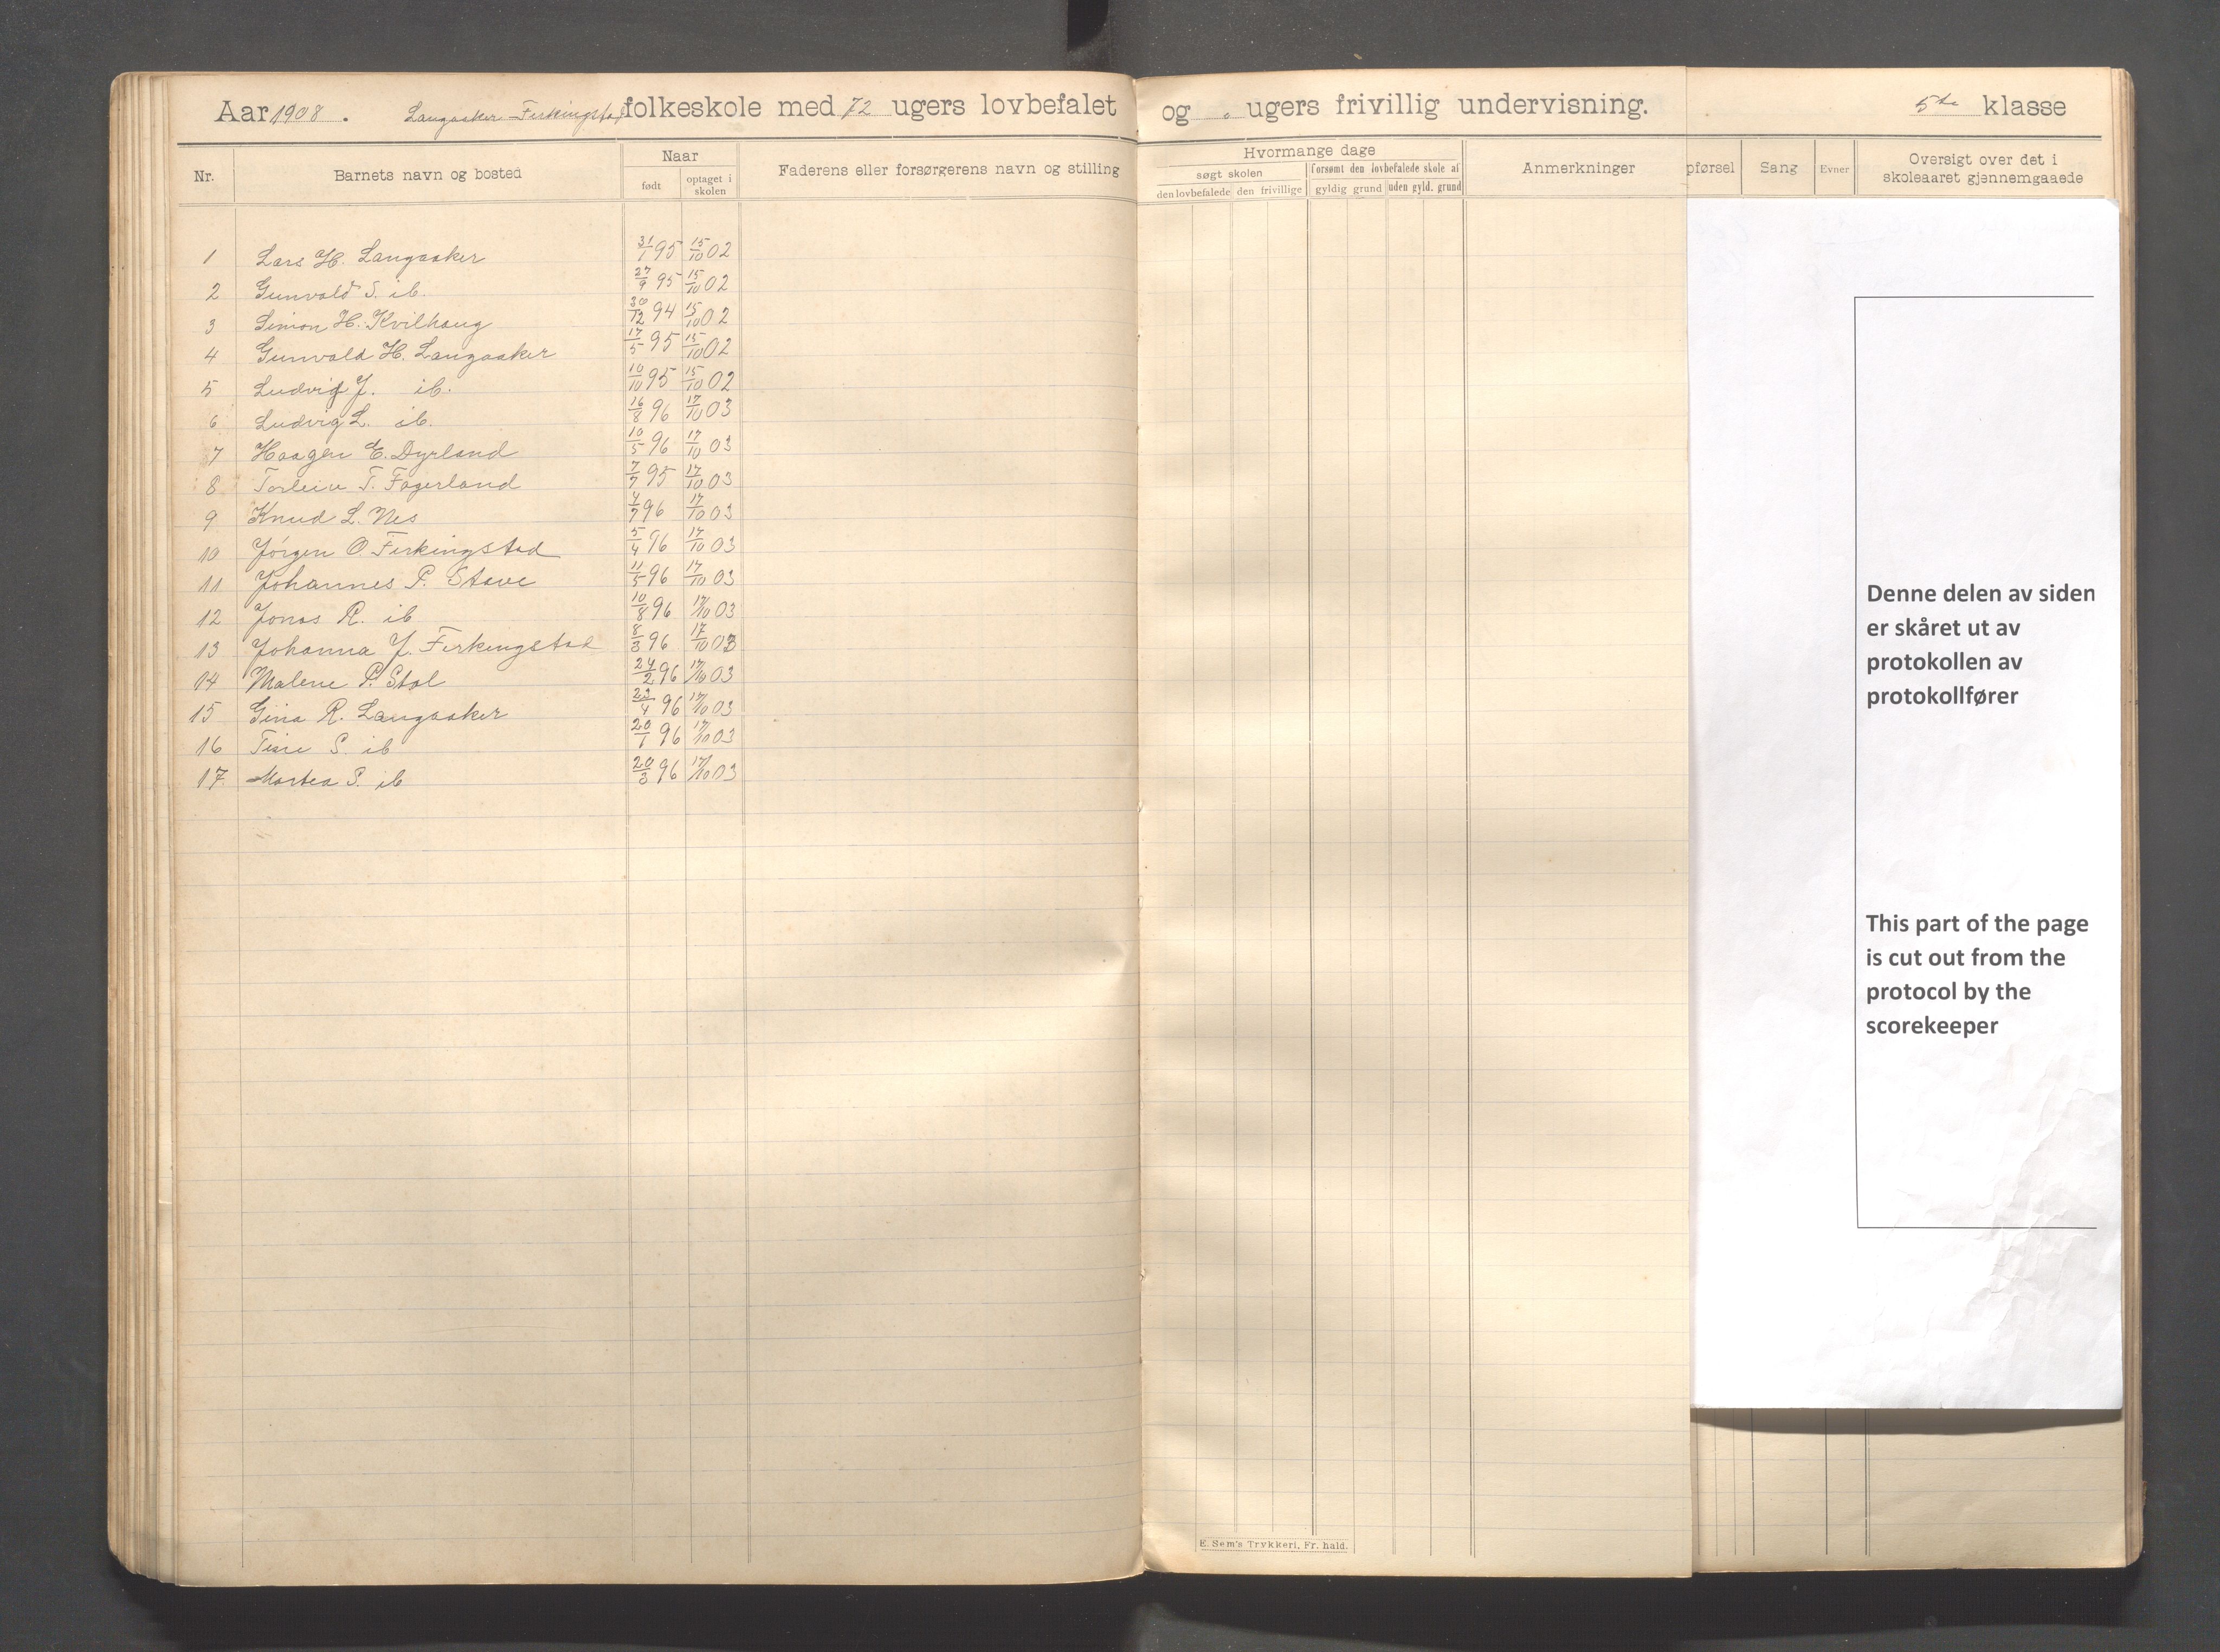 Aar 1908. Langaaker-Ferkingstad folkeskole med 72 ugers lovbefalet og ugers frivillig undervisning. 5te klasse
Nr. Barnets navn og bosted Naar født optaget i skolen Faderens eller forsørgerens navn og stilling
Hvormange dage søgt skolen den lovbefalede den frivillige forsømt den lovbefalede skole af gyldig grund uden gyld. grund Anmerkninger
pførsel Sang Evner Oversigt over det i skoleaaret gjennemgaaede
1 Lars H. Langaaker 31/1 95 15/10 02
2 Gunvald S. ib. 27/9 95 15/10 02
3 Simon H. Kvilhaug 30/12 94 15/10 02
4 Gunvald H. Langaaker 17/5 95 15/10 02
5 Ludvig J. ib. 10/10 95 15/10 02
6 Ludvig L. ib. 16/8 96 17/10 03
7 Haagen E. Dyrland 10/5 96 17/10 03
8 Torleiv T. Fagerland 7/7 95 17/10 03
9 Knud L. Nes 4/7 96 17/10 03
10 Jörgen O. Ferkingstad 5/4 96 17/10 03
11 Johannes P. Stave 11/5 96 17/10 03
12 Jonas R. ib 10/8 96 17/10 03
13 Johanna J. Ferkingstad 8/3 96 17/10 03
14 Malene P. Stol 24/2 96 17/10 03
15 Gina R. Langaaker 23/4 96 17/10 03
16 Tine S. ib 20/1 96 17/10 03
17 Martea S. ib 20/3 96 17/10 03
Denne delen av siden
er skåret ut av
protokollen av
protokollfører
This part of the page
is cut out from the
protocol by the
scorekeeper
E. Sem's Trykkeri, Fr. hald.